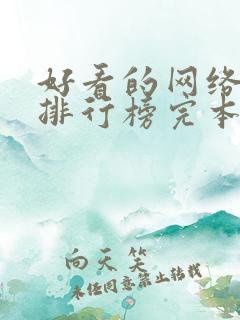 好看的网络
排行榜完本
向天笑
未经同意禁止转载